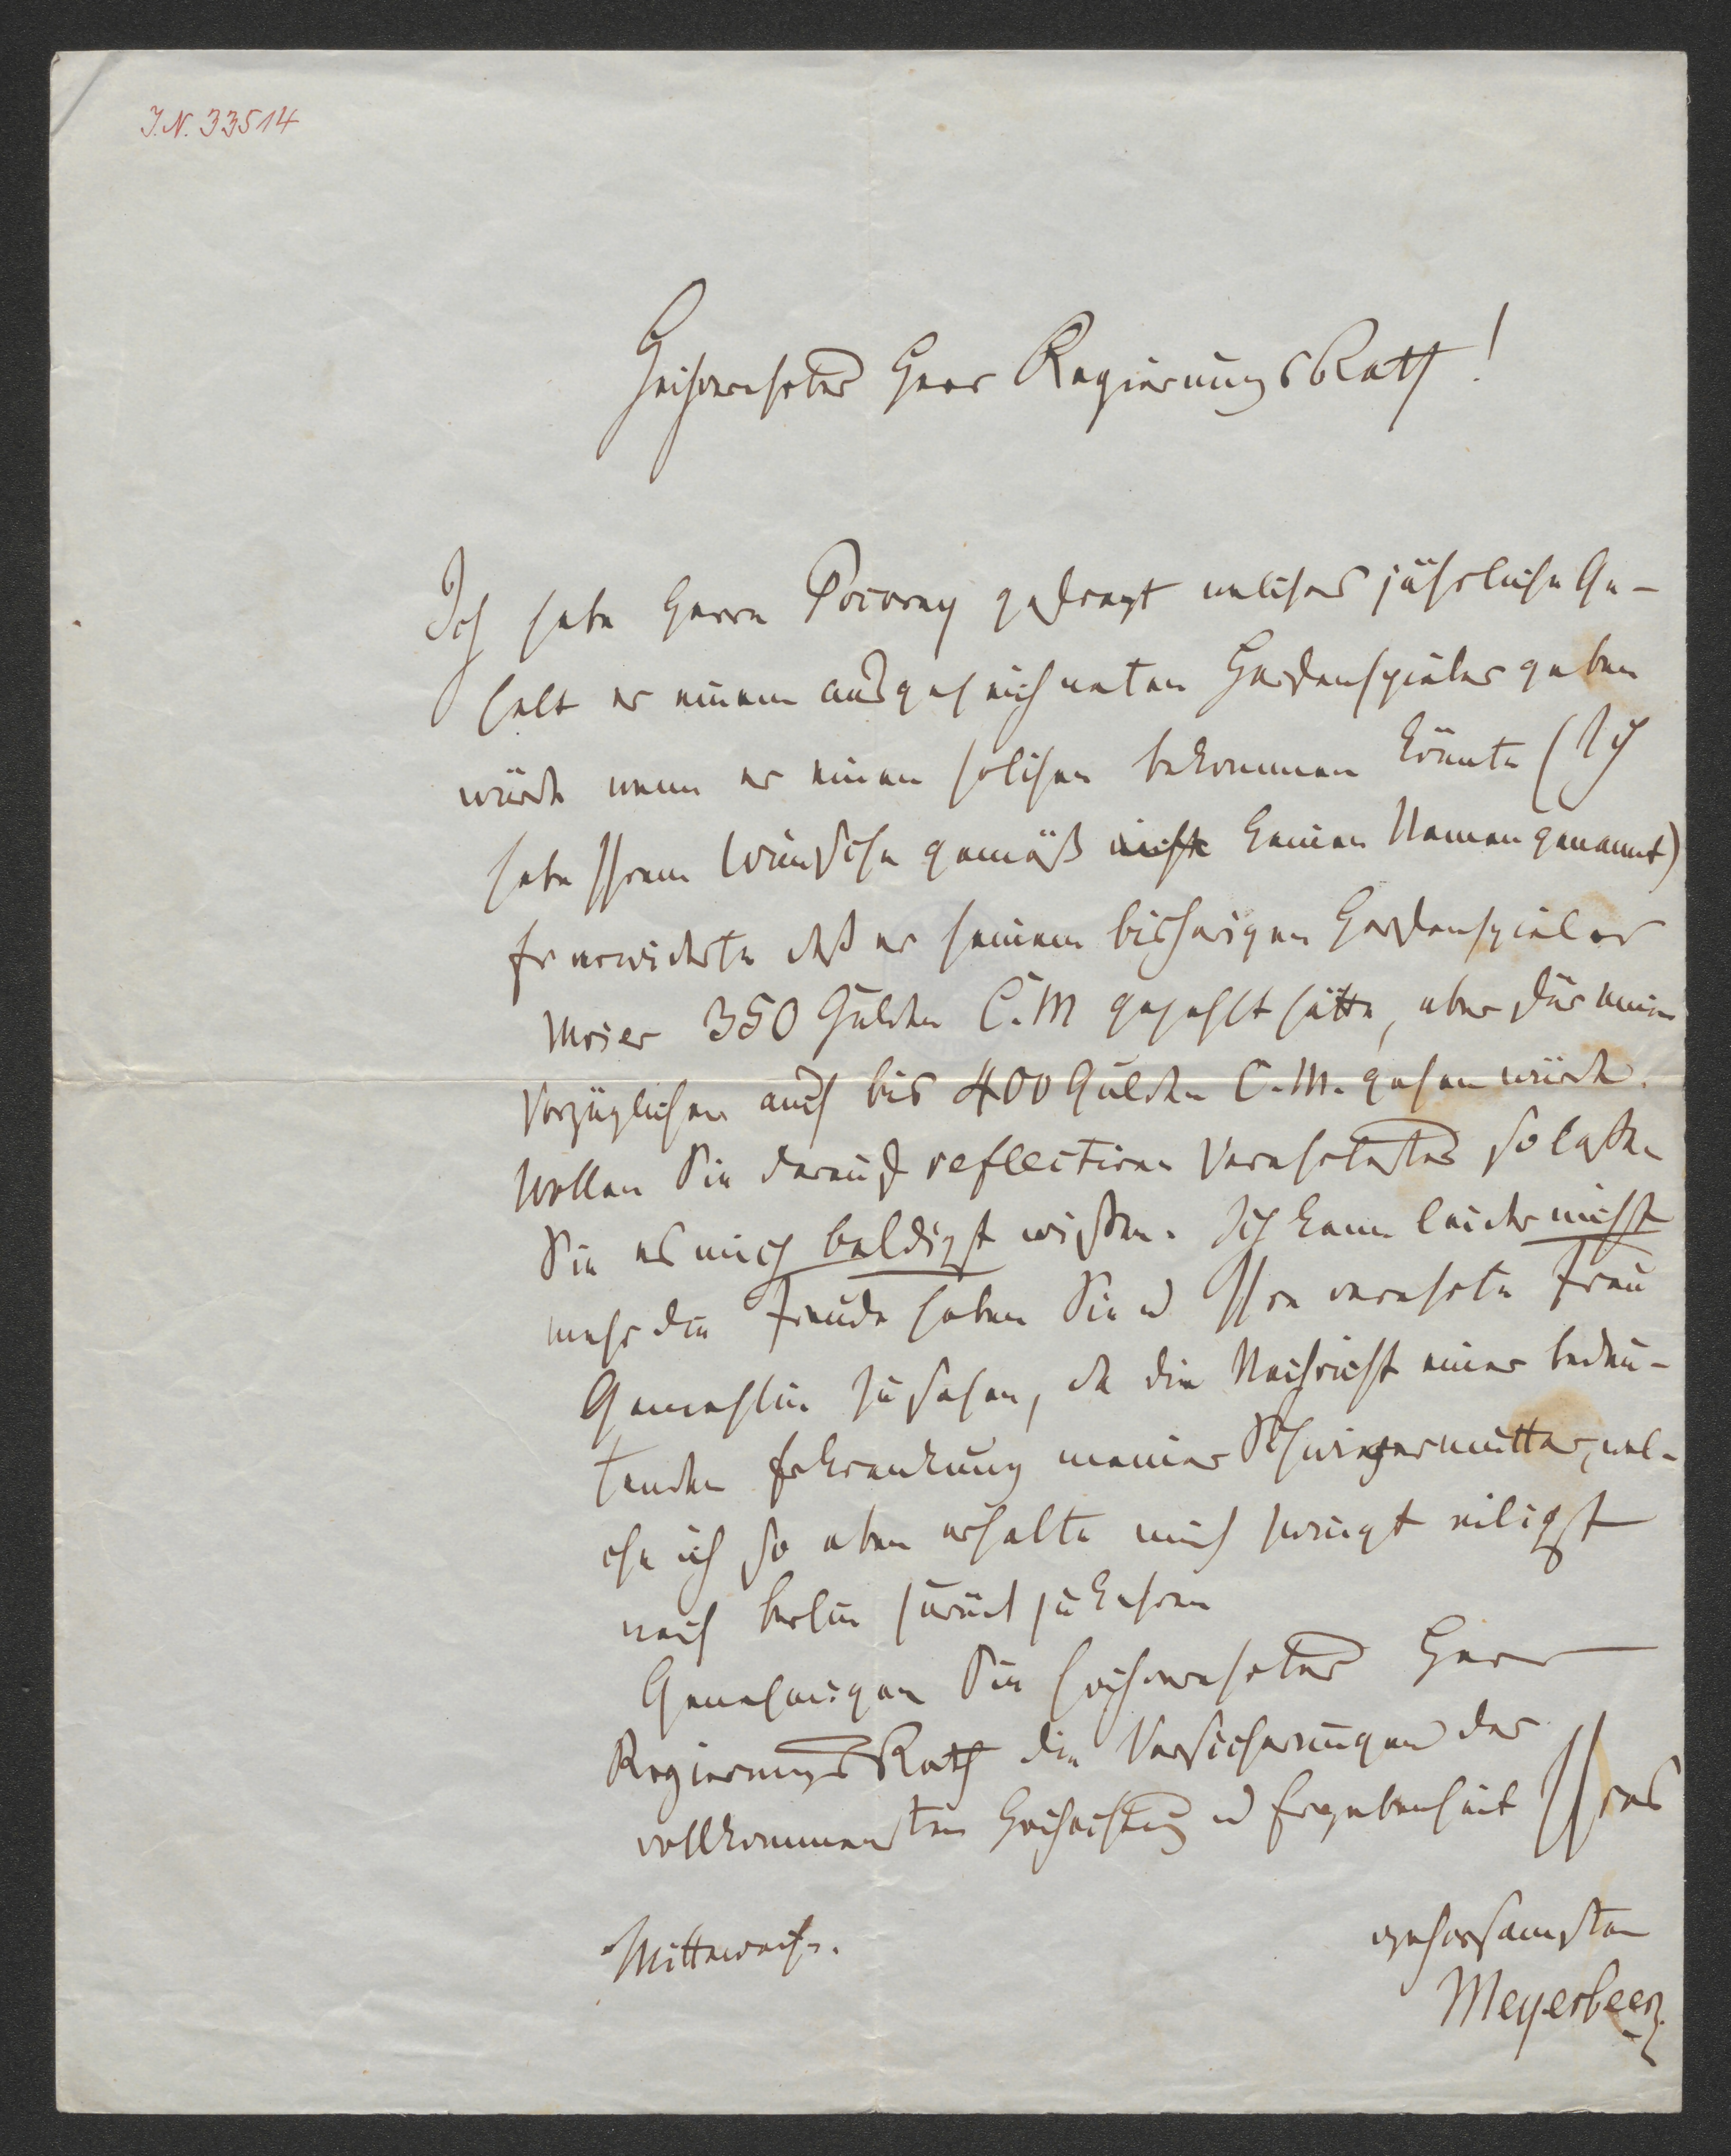 J.N. 33514
Hochverehrter Herr RegierungsRath!
Ich habe Herrn Pocorny gefragt welches jährliche Ge-
halt er einem ausgezeichneten Harfenspieler geben
würde wenn er einen solchen bekommen könnte (Ich
habe Ihrem Wunsche gemäß nicht keinen Namen genannt)
Er erwiderte daß er seinem bisherigen Harfenspieler
Moser 350 Gulden C.M gezahlt hätte, aber für einen
Vorzüglichen auch bis 400 Gulden C.M. gehen würde.
Wollen Sie darauf reflectiren Verehrtester so laßen
Sie es mich baldigst wißen. Ich kann leider nicht
mehr die Freude haben Sie u Ihre verehrte Frau
Gemahlin zu sehen, da die Nachricht einer bedeu-
tenden Erkrankung meiner Schwiegermutter, wel-
che ich so eben erhalte mich zwingt eiligst
nach Berlin zurück zu kehren
Genehmigen Sie hochverehrter Herr
RegierungsRath die Versicherungen der
vollkommensten Hochachtung u Ergebenheit Ihres
gehorsamsten
Mittewoch.
Meyerbeer